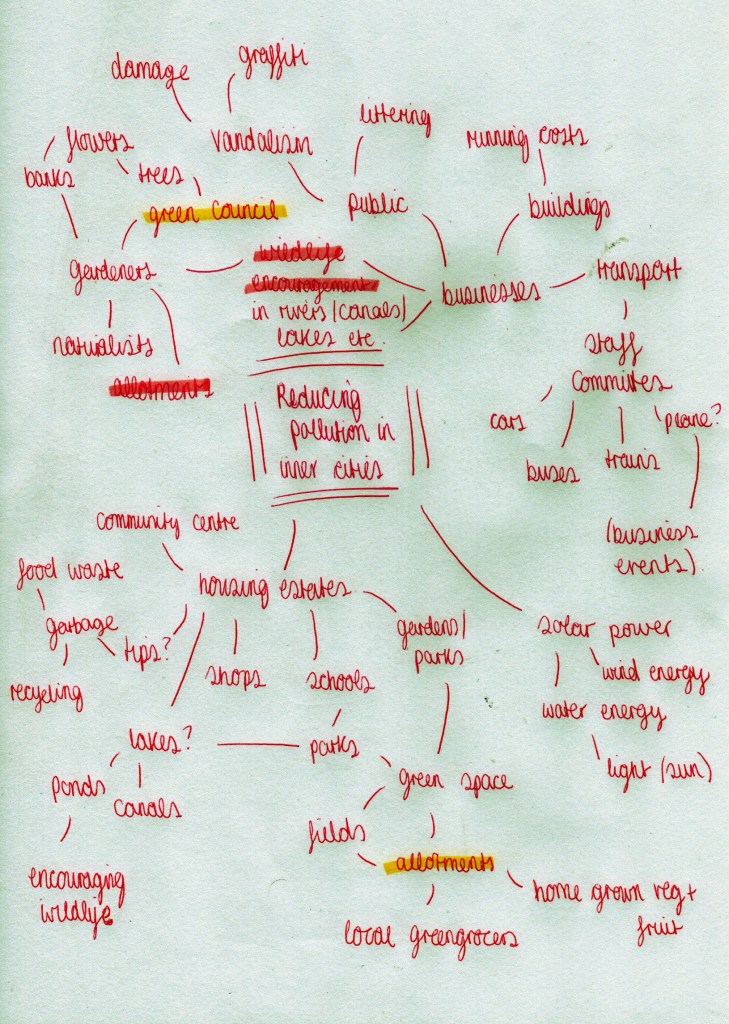 damage
graffiti
Vandalism
littering
running costs
flowers
banks
trees
green council
public
buildings
gardeners
wildlife
encouragement
in rivers/canals/
lakes etc.
businesses
transport
naturalists
allotments
staff
Committes
cars
buses
trains
plane?
(business
events).
Reducing
pollution in
inner cities
community centre
food waste
garbage
tips?
recycling
housing estates
shops
schools
gardens/
parks
solar power
wind energy
water energy
light (sun)
lakes?
ponds
canals
encouraging
wildlife
parks
green space
fields
allotments
home grown veg+
fruit
local greengrocers